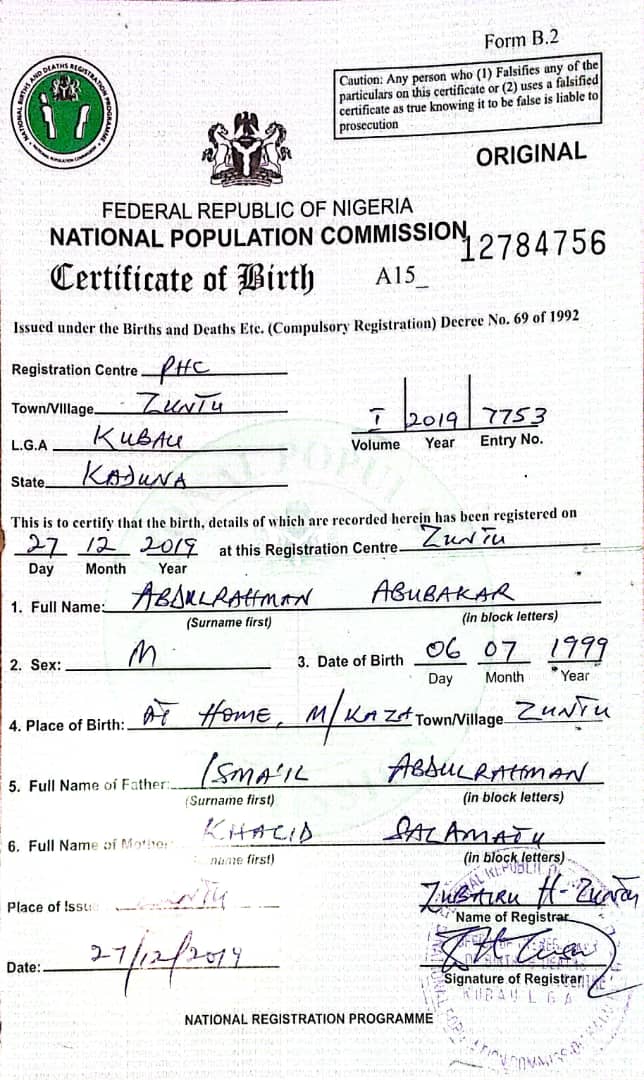 Form B.2
Caution: Any person who (1) Falsifies any of the
particulars on this certificate or (2) uses a falsified
certificate as true knowing it to be false is liable to
prosecution
NATIONAL BIRTHS AND DEATHS REGISTRATION PROGRAMME
NATIONAL POPULATION COMMISSION
ORIGINAL
FEDERAL REPUBLIC OF NIGERIA
NATIONAL POPULATION COMMISSION
12784756
Certificate of Birth A15_
Issued under the Births and Deaths Etc. (Compulsory Registration) Decree No. 69 of 1992
Registration Centre PHC
Town/Village ZUNTU
I 2019 7753
Volume Year Entry No.
L.G.A KUBAU
State KADUNA
This is to certify that the birth, details of which are recorded herein has been registered on
27 12 2019 at this Registration Centre ZUNTU
Day Month Year
1. Full Name: ABDULRAHMAN ABUBAKAR
(Surname first) (in block letters)
2. Sex: M 3. Date of Birth 06 07 1999
Day Month Year
4. Place of Birth: AT HOME, M/KAZA Town/Village ZUNTU
5. Full Name of Father: ISMA'IL ABDULRAHMAN
(Surname first) (in block letters)
6. Full Name of Mother: KHALID SALAMATU
name first) (in block letters)
Place of Issue
ZUBAIRU H-ZUNTU
Name of Registrar
Date: 27/12/2019
Signature of Registrar
KUBAU LGA
NATIONAL REGISTRATION PROGRAMME